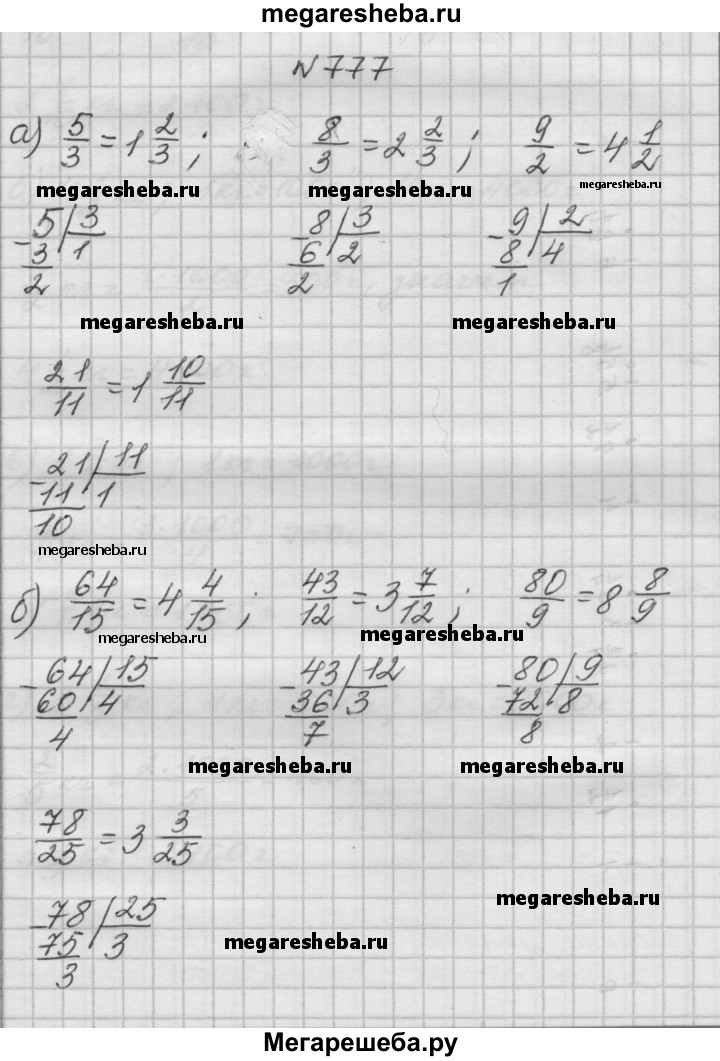 megaresheba.ru
N777
а) 5/3 = 1 2/3 ; 8/3 = 2 2/3 ; 9/2 = 4 1/2
megaresheba.ru megaresheba.ru megaresheba.ru
5 | 3 8 | 3 9 | 2
- 3 | 1 - 6 | 2 - 8 | 4
2 2 1
megaresheba.ru megaresheba.ru
21/11 = 1 10/11
21 | 11
- 11 | 1
10
megaresheba.ru
б) 64/15 = 4 4/15 ; 43/12 = 3 7/12 ; 80/9 = 8 8/9
megaresheba.ru megaresheba.ru
64 | 15 43 | 12 80 | 9
- 60 | 4 - 36 | 3 - 72 | 8
4 7 8
megaresheba.ru megaresheba.ru
78/25 = 3 3/25
78 | 25
- 75 | 3
3
megaresheba.ru
megaresheba.ru
Мегарешеба.ру